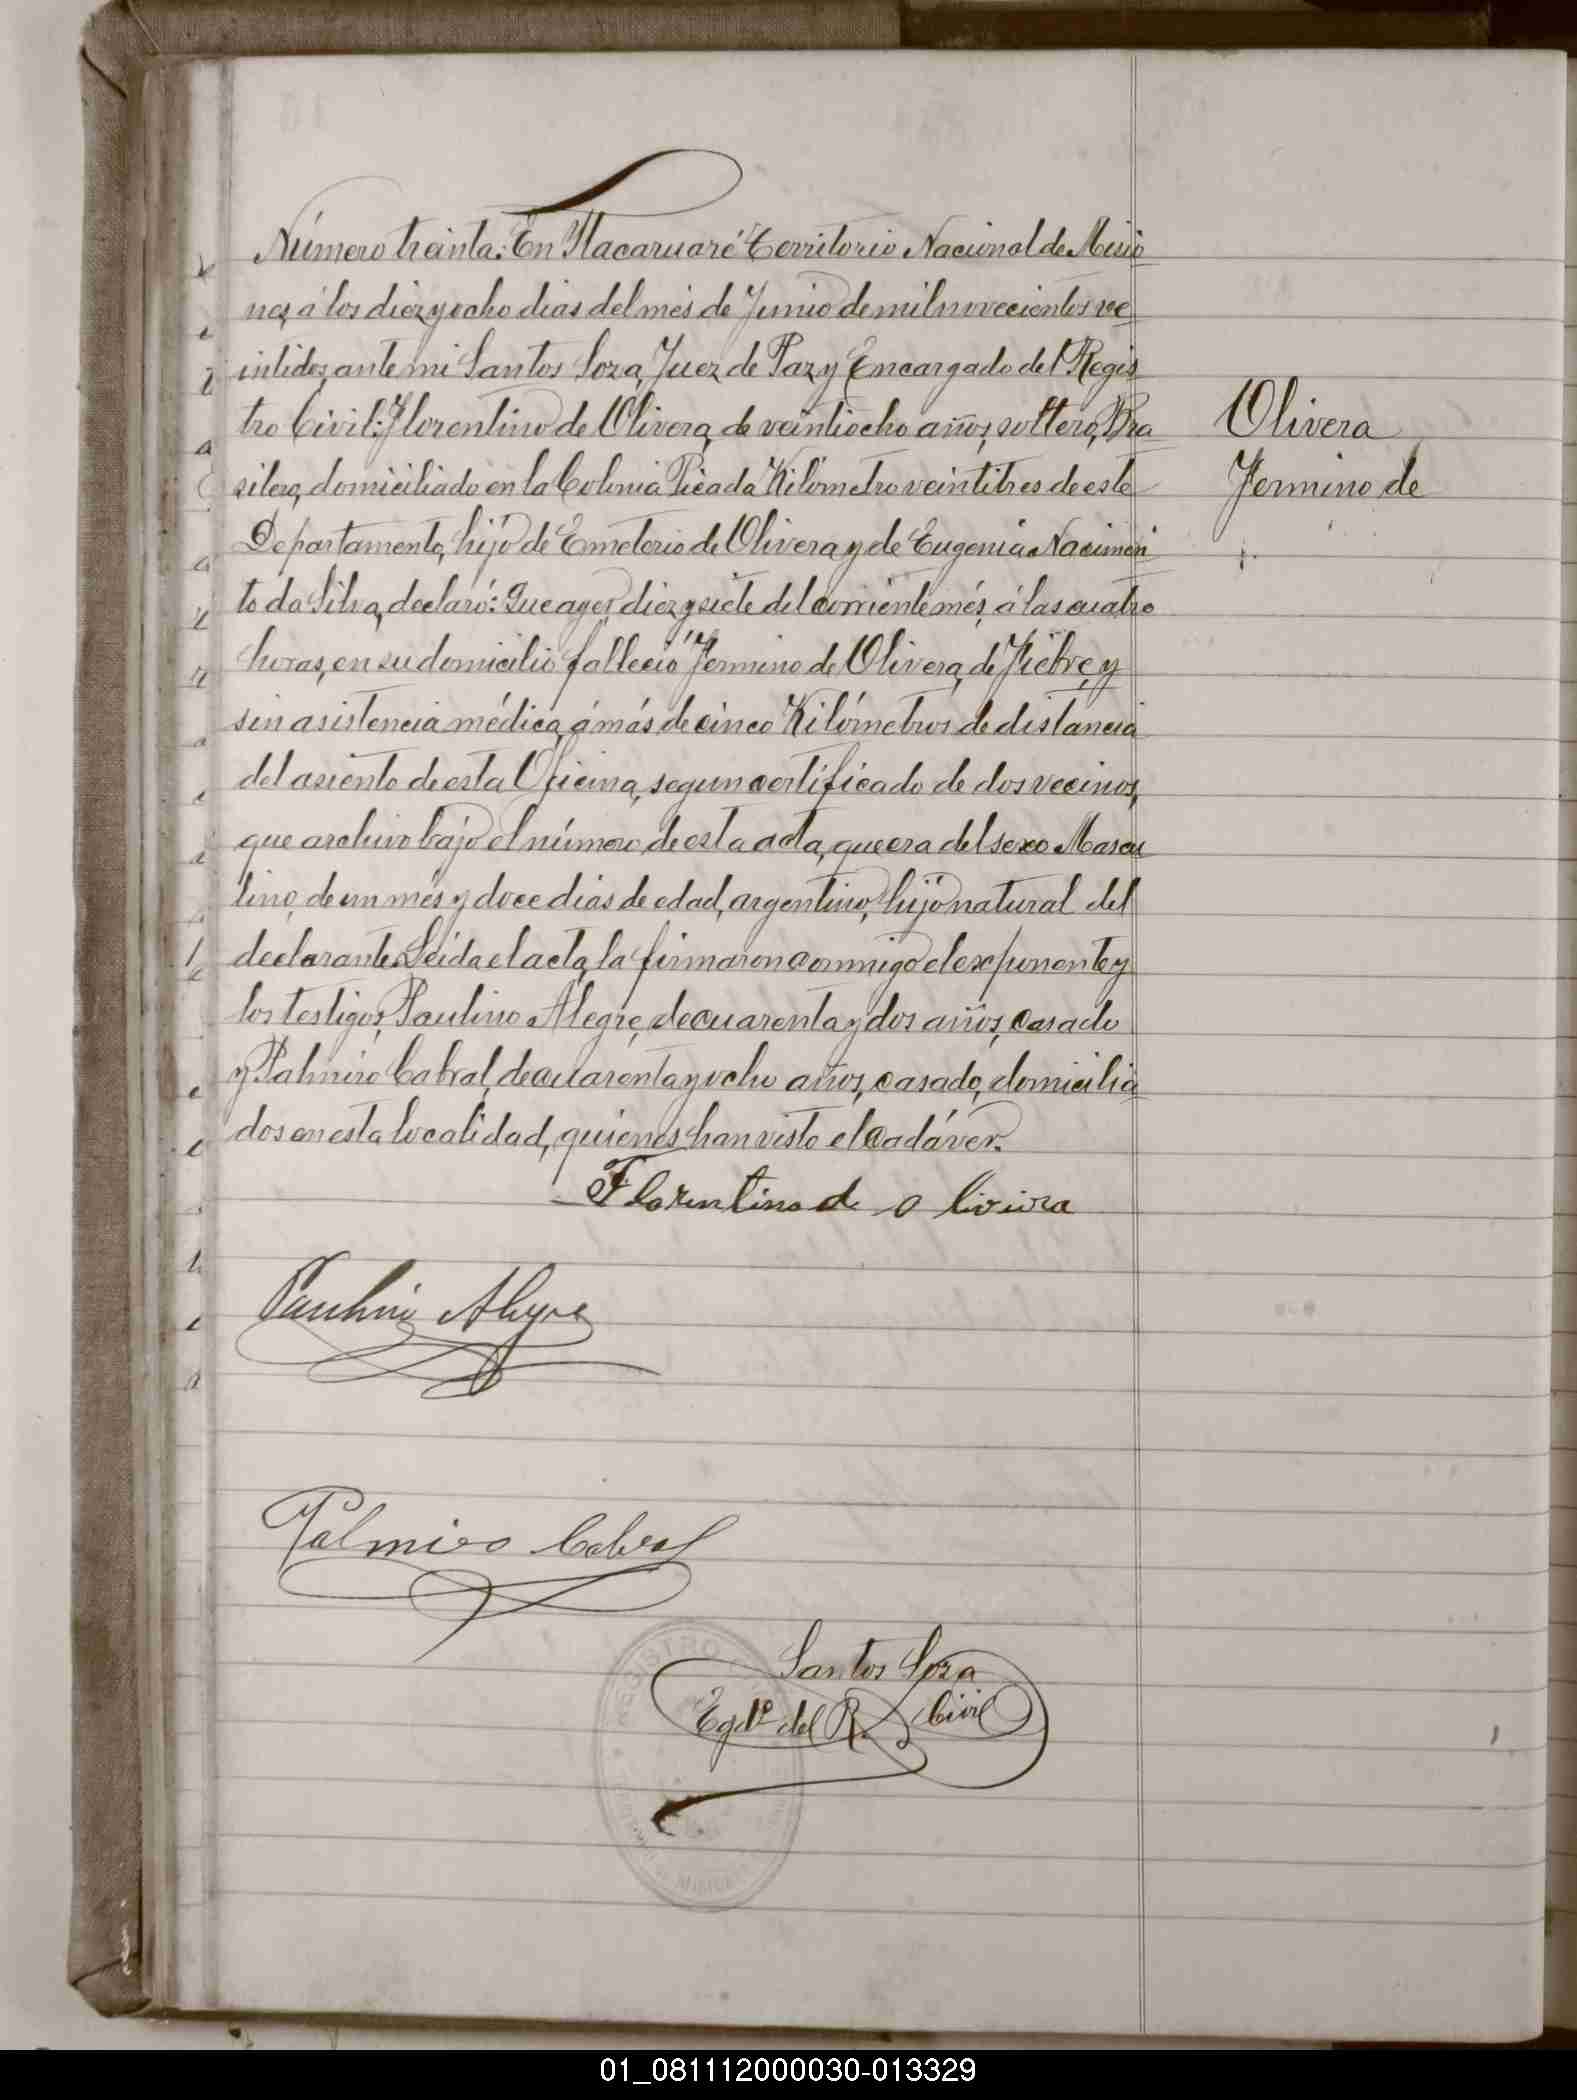 Número treinta: En Itacaruaré Territorio Nacional de Misio
nes, á los diez y ocho dias del mes de Junio de mil novecientos ve
intidos, ante mi Santos Soza, Juez de Paz y Encargado del Regis
tro Civil: Florentino de Olivera, de veintiocho años, soltero, Bra
silero, domiciliado en la Colonia Picada Kilómetro veintitres de este
Departamento, hijo de Emeterio de Olivera y de Eugenia Nacimen
to da Silva, declaró: Que ayer diez y siete del corriente més, á las cuatro
horas, en su domicilio falleció Fermino de Olivera, de Fiebre, y
sin asistencia médica, á más de cinco Kilómetros de distancia
del asiento de esta Oficina, segun certificado de dos vecinos,
que archivo bajo el número de esta acta, que era del sexo Mascu
lino, de un més y doce dias de edad, argentino, hijo natural del
declarante. Leida el acta, la firmaron conmigo el exponente y
los testigos, Paulino Alegre, de cuarenta y dos años, casado
y Palmiro Cabral, de cuarenta y ocho años, casado, domicilia
dos en esta localidad, quienes han visto el cadáver.
Olivera
Fermino de
Florentino de o liviira
Paulino Alegre
Palmiro Cabral
Santos Soza
Egdo. del R. Civil
REGISTRO
MISIONES
01_081112000030-013329